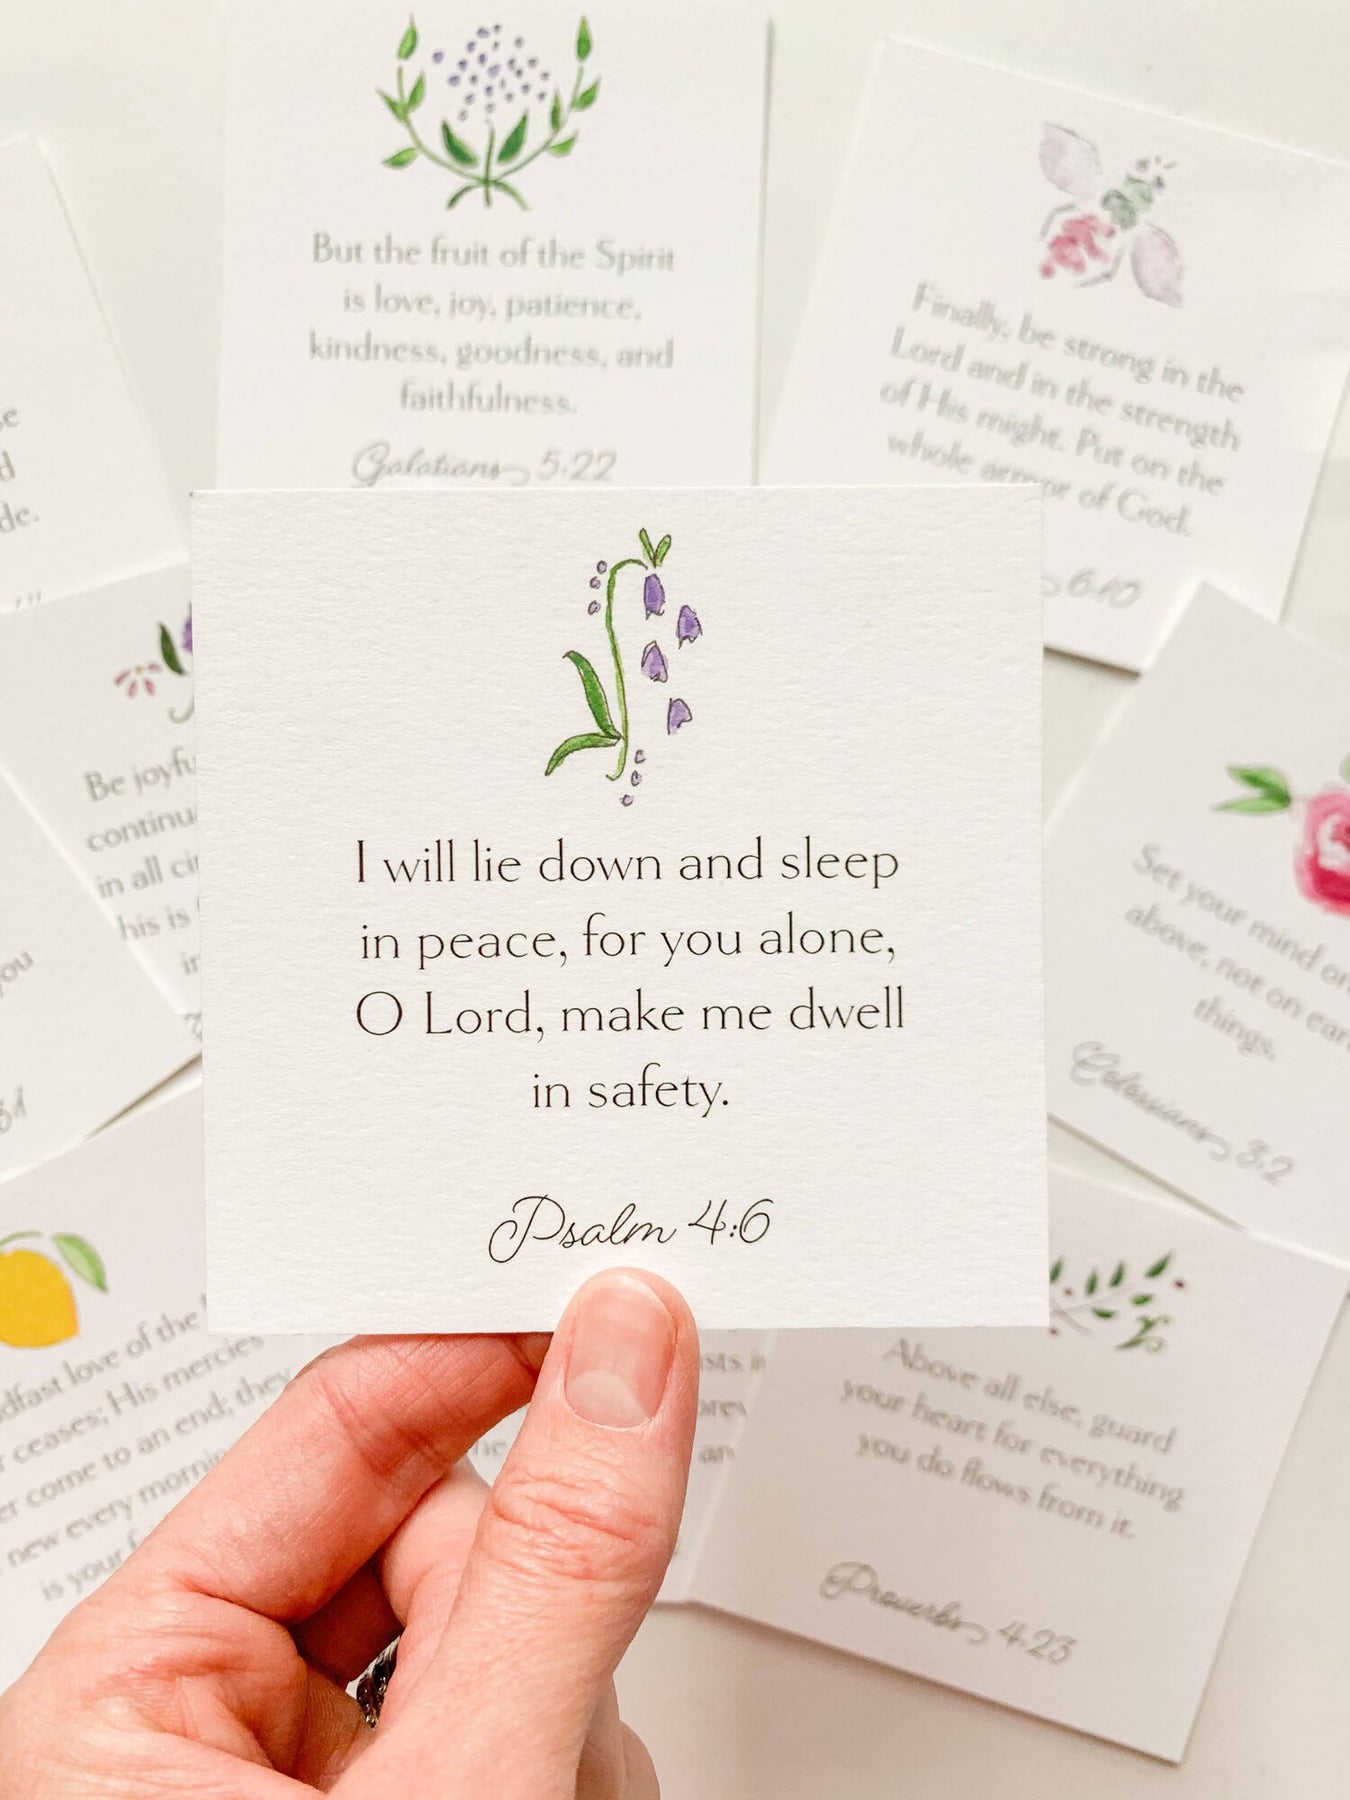 But the fruit of the Spirit
is love, joy, patience,
kindness, goodness, and
faithfulness.
Galatians 5:22
Finally, be strong in the
Lord and in the strength
of His might. Put on the
whole armor of God.
6:10
de.
I will lie down and sleep
in peace, for you alone,
O Lord, make me dwell
in safety.
Psalm 4:6
Be joyfu
continu
in all ci
his is
in
Set your mind on
above, not on ear
things.
Colossians 3:2
ou
dfast love of the
ceases; His mercies
er come to an end; they
new every mornin
is your f
Above all else, guard
your heart for everything
you do flows from it.
Proverbs 4:23